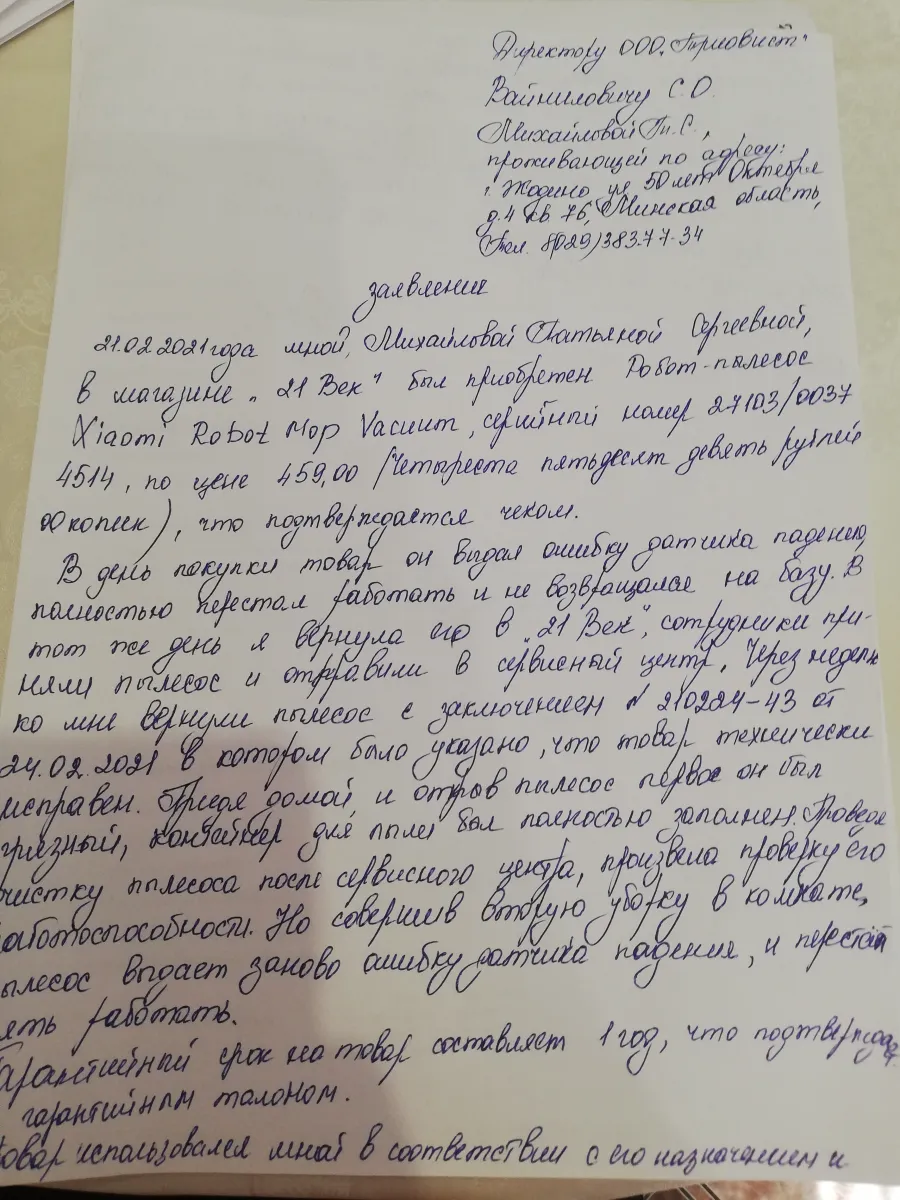 Директору ООО "Триовист"
Войниловичу С.О.
Михайловой Т.С.,
проживающей по адресу:
г. Жодино ул 50 лет Октября
д.4 кв 76, Минская область,
Тел. 8(029)383-77-34
заявление
21.02.2021 года мной, Михайловой Татьяной Сергеевной,
в магазине "21 Век" был приобретен Робот-пылесос
Xiaomi Robot Mop Vacuum, серийный номер 27103/0037
4514, по цене 459,00 (Четыреста пятьдесят девять рублей
00 копеек), что подтверждается чеком.
В день покупки товар он выдал ошибку датчика падения,
полностью перестал работать и не возвращался на базу. В
тот же день я вернула его в "21 Век", сотрудники при-
няли пылесос и отправили в сервисный центр. Через недель
ко мне вернули пылесос с заключением № 210224-43 от
24.02.2021 в котором было указано, что товар технически
исправен. Придя домой, и открыв пылесос первое он был
грязный, контейнер для пыли был полностью заполнен. Проведя
чистку пылесоса после сервисного центра, произвела проверку его
аботоспособности. Но совершив вторую уборку в комнате,
ылесос выдает заново ошибку датчика падения, и перестал
ять работать.
арантийный срок на товар составляет 1 год, что подтверждает
гарантийным талоном.
овар использовался мной в соответствии с его назначением и